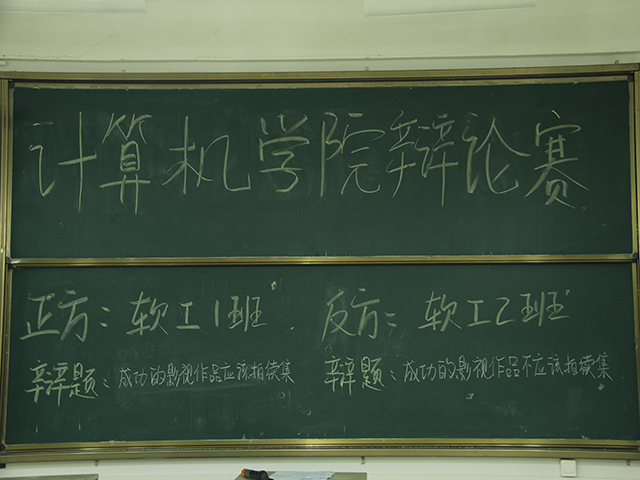 计算机学院辩论赛
正方：软工1班
反方：软工2班
辩题：成功的影视作品应该拍续集
辩题：成功的影视作品不应该拍续集